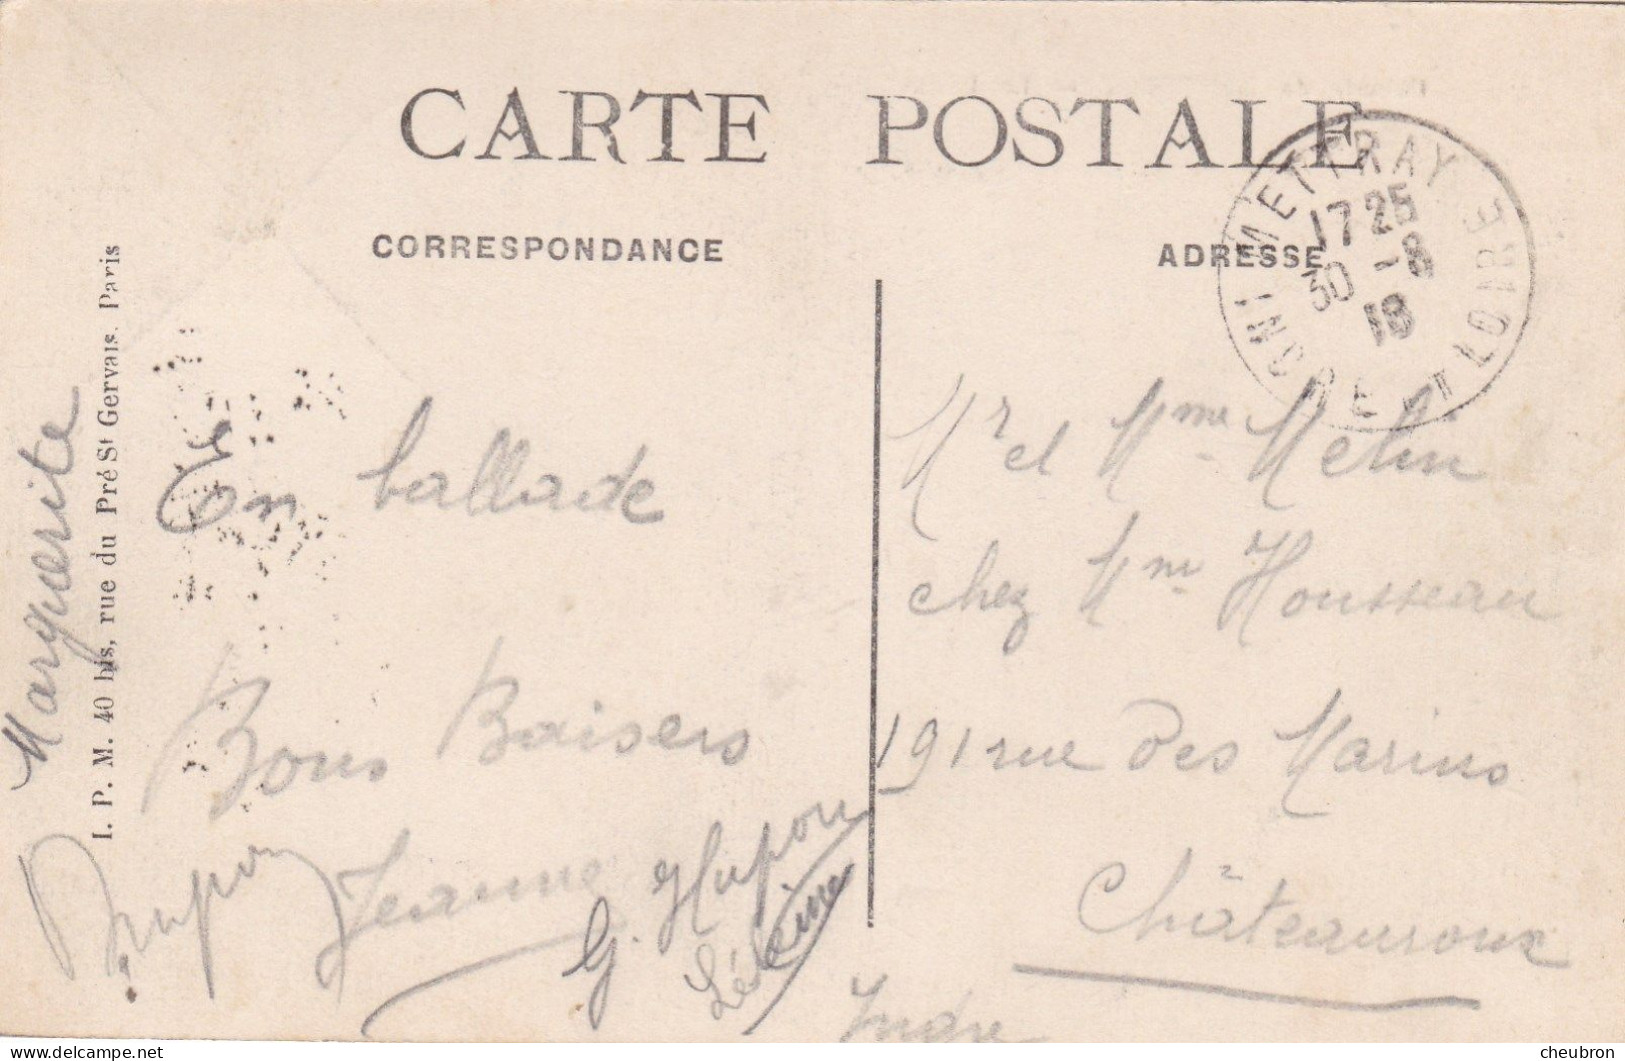 CARTE POSTALE
CORRESPONDANCE
ADRESSE
METTRAY
17 25
30 -8
18
INDRE ET LOIRE
I. P. M. 40 bis, rue du Pré St Gervais. Paris
Marguerite
En ballade
Bons Baisers
Jeanne
G. Hupon
Mr et Mme Melin
chez Mme Housseau
191 rue des Marins
Châteauroux
Indre
cheubron - delcampe.net